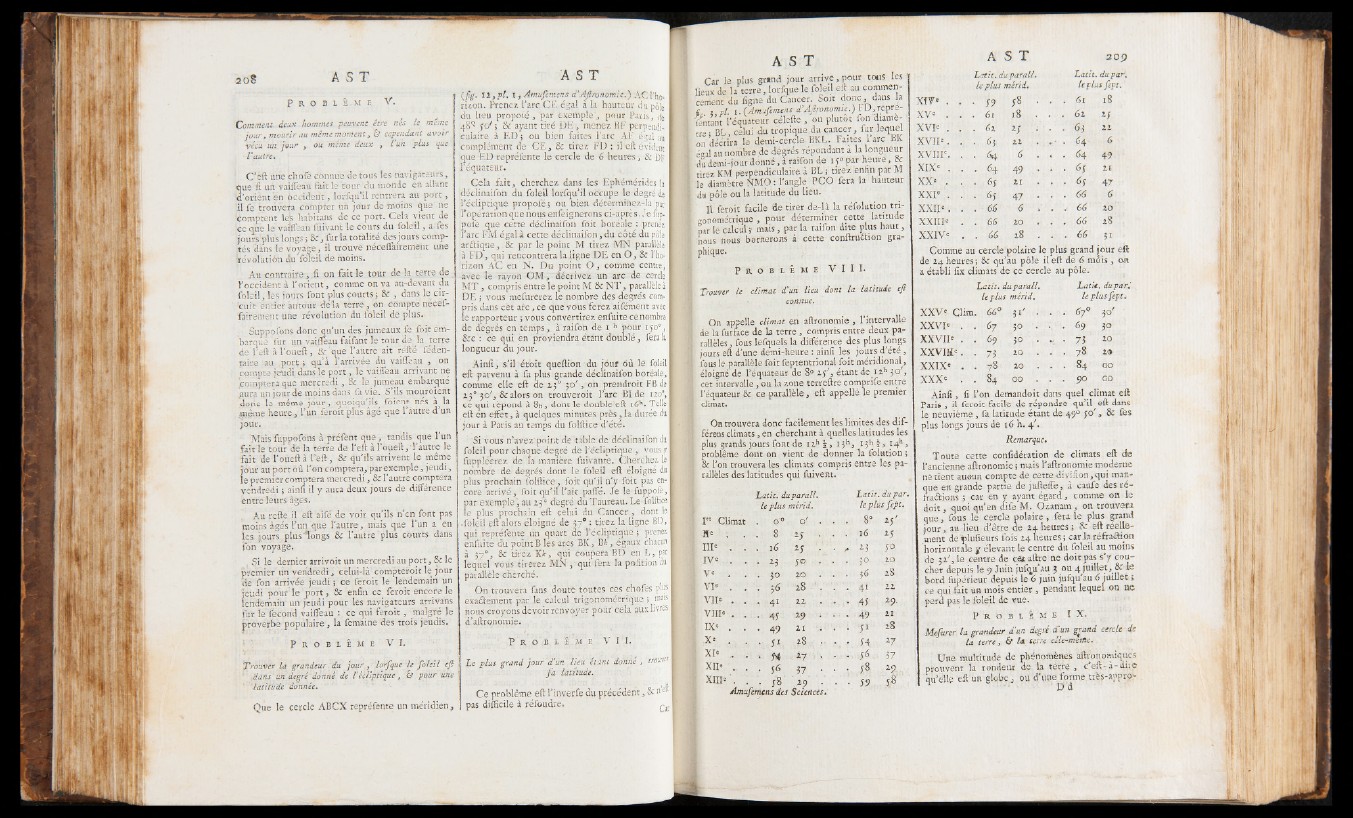 208 AST
PROBLÊME V.
Comment deux hommes peuvent être nés le même
jour, mourir au même moment, & cependant avoir
vécu un jour, ou même deux, l'un plus que
l'autre.
C'est une chose connue de tous les navigateurs,
que si un vaisseau fait le tour du monde en allant
d'orient en occident, lorsqu'il rentrera au port,
il se trouvera compter un jour de moins que ne
comptent les habitans de ce port. Cela vient de
ce que le vaisseau suivant le cours du soleil, a ses
jours plus longs; &, sur la totalité des jours comp-
tés dans le voyage, il trouve nécessairement une
révolution du soleil de moins.
Au contraire, si on fait le tour de la terre de
l'occident à l'orient, comme on va au-devant du
soleil, les jours sont plus courts; &, dans le cir-
cuit entier autour de la terre, on compte néces-
sairement une révolution du soleil de plus.
Supposons donc qu'un des jumeaux se soit em-
barqué sur un vaisseau faisant le tour de la terre
de l'est à l'ouest, & que l'autre ait resté séden-
taire au port; qu'à l'arrivée du vaisseau, on
compte jeudi dans le port, le vaisseau arrivant ne
comptera que mercredi, & le jumeau embarqué
aura un jour de moins dans sa vie. S'ils mouroient
donc le même jour, quoiqu'ils soient nés à la
même heure, l'un seroit plus âgé que l'autre d'un
jour.
Mais supposons à présent que, tandis que l'un
fait le tour de la terre de l'est à l'ouest, l'autre le
fait de l'ouest à l'est, & qu'ils arrivent le même
jour au port où l'on comptera, par exemple, jeudi,
le premier comptera mercredi, & l'autre comptera
vendredi; ainsi il y aura deux jours de différence
entre leurs âges.
Au reste il est aisé de voir qu'ils n'en sont pas
moins âgés l'un que l'autre, mais que l'un a eu
les jours plus longs & l'autre plus courts dans
son voyage.
Si le dernier arrivoit un mercredi au port, & le
premier un vendredi, celui-là compteroit le jour
de son arrivée jeudi; ce seroit le lendemain un
jeudi pour le port, & enfin ce seroit encore le
lendemain un jeudi pour les navigateurs arrivans
sur le second vaisseau: ce qui feroit, malgré le
proverbe populaire, la semaine des trois jeudis.
PROBLÊME VI.
Trouver la grandeur du jour, lorsque le soleil est
dans un degré donné de l'écliptique, & pour une
latitude donnée.
Que le cercle ABCX représente un méridien,
AST
(fig. 12, pl. 1, Amusemens d'Astronomie.) AC l'ho-
rizon. Prenez l'arc CE égal à la hauteur du pôle
du lieu proposé, par exemple, pour Paris, de
48° 50'; & ayant tiré DE, menez BF perpendi-
culaire à ED; ou bien faites l'arc AF égal au
complement de CE, & tirez FD: il est évident
que ED représente le cercle de 6 heures, & DF
l'équateur.
Cela fait, cherchez dans les Ephémérides la
déclinaison du soleil lorsqu'il occupe le degré de
l'écliptique proposé; ou bien déterminez-la par
l'opération que nous enseignerons ci-après. Je sup-
pose que cette déclinaison soit boréale: prenez
l'arc FM égal à cette déclinaison, du côté du pôle
arctique, & par le point M tirez MN parallèle
à FD, qui rencontrera la ligne DE en O, & l'ho-
rizon AC en N. Du point O, comme centre,
avec le rayon OM, décrivez un arc de cercle
MT, compris entre le point M & NT, parallèle à
DE; vous mesurerez le nombre des degrés com-
pris dans cet arc, ce que vous ferez aisément avec
le rapporteur; vous convertirez ensuite ce nombre
de degrés en temps, à raison de 1 h pour 15°,
&c: ce qui en proviendra étant doublé, sera la
longueur du jour.
Ainsi, s'il étoit question du jour où le soleil
est parvenu à sa plus grande déclinaison boréale,
comme elle est de 23° 30', on prendroit FB de
23° 30', & alors on trouveroit l'arc BI de 120°,
ce qui répond à 8h, dont le double est 16h. Telle
est en effet, à quelques minutes près, la durée du
jour à Paris au temps du solstice d'été.
Si vous n'avez point de table de déclinaison du
soleil pour chaque degré de l'écliptique, vous y
suppléerez de la manière suivante. Cherchez le
nombre de degrés dont le soleil est éloigné du
plus prochain solstice, soit qu'il n'y soit pas en-
core arrivé, soit qu'il l'ait passé. Je le suppose,
par exemple, au 23e degré du Taureau. Le solstice
le plus prochain est celui du Cancer, dont le
soleil est alors éloigné de 37°: tirez la ligne BD,
qui représente un quart de l'écliptique; prenez
ensuite du point B les arcs BK, Bk, égaux chacun
à 37°, & tirez Kk, qui coupera BD en L, par
lequel vous tirerez MN, qui sera la position du
parallèle cherché.
On trouvera sans doute toutes ces choses plus
exactement par le calcul trigonométrique; mais
nous croyons devoir renvoyer pour cela aux livres
d'astronomie.
PROBLÊME VII.
Le plus grand jour d'un lieu étant donné, trouver
sa latitude.
Ce problême est l'inverse du précédent, & n'est
pas difficile à résoudre.
Car
AST
Car le plus grand jour arrive, pour tous les
lieux de la terre, lorsque le soleil est au commen-
cement du signe du Cancer. Soit donc, dans la
fig. 3, pl. 1. (Amusemens d'Astronomie.) FD, repré-
sentant l'équateur céleste, ou plutôt son diamè-
tre; BL, celui du tropique du cancer, sur lequel
on décrira le demi-cercle BKL. Faites l'arc BK
égal au nombre de degrés répondant à la longueur
du demi-jour donné, à raison de 15° par heure, &
tirez KM perpendiculaire à BL; tirez enfin par M
le diamètre NMO: l'angle PCO sera la hauteur
du pôle ou la latitude du lieu.
Il seroit facile de tirer de-là la résolution tri-
gonométrique, pour déterminer cette latitude
par le calcul; mais, par la raison dite plus haut,
nous nous bornerons à cette construction gra-
phique.
PROBLÊME VIII.
Trouver le climat d'un lieu dont la latitude est
connue.
On appelle climat en astronomie, l'intervalle
de la surface de la terre, compris entre deux pa-
rallèles, sous lesquels la différence des plus longs
jours est d'une demi-heure: ainsi les jours d'été,
sous le parallèle soit septentrional soit méridional,
éloigné de l'équateur de 8° 25', étant de 12h 30',
cet intervalle, ou la zone terrestre comprise entre
l'équateur & ce parallèle, est appellé le premier
climat.
On trouvera donc facilement les limites des dif-
férens climats, en cherchant à quelles latitudes les
plus grands jours sont de 12h ½, 13h, 13h ½, 14h,
problême dont on vient de donner la solution;
& l'on trouvera les climats compris entre les pa-
rallèles des latitudes qui suivent.
Latit. du parall. Latit. du par.
le plus mérid. le plus sept.
Ier Climat . 0° 0' . . . 8° 25'
IIe . . . 8 25 . . . 16 25
IIIe . . . 16 25 . . . 23 50
IVe . . . 23 50 . . . 30 20
Ve . . . 30 20 . . . 36 28
VIe . . . 36 28 . . . 41 22
VIIe . . . 41 22 . . . 45 29
VIIIe . . . 45 29 . . . 49 21
IXe . . . 49 21 . . . 51 28
Xe . . . 51 28 . . . 54 27
XIe . . . 54 27 . . . 56 37
XIIe . . . 56 37 . . . 58 29
XIIIe . . . 58 29 . . . 59 58
Amusemens des Sciences.
AST 209
Latit. du parall. Latit. du par.
le plus mérid. le plus sept.
XIVe . . . 59 58 . . . 61 18
XVe . . . 61 18 . . . 62 25
XVIe . . . 62 25 . . . 63 22
XVIIe . . . 63 22 . . . 64 6
XVIIIe . . . 64 6 . . . 64 49
XIXe . . . 64 49 . . . 65 21
XXe . . . 65 21 . . . 65 47
XXIe . . . 65 47 . . . 66 6
XXIIe . . . 66 6 . . . 66 20
XXIIIe . . . 66 20 . . . 66 28
XXIVe . . . 66 28 . . . 66 31
Comme au cercle polaire le plus grand jour est
de 24 heures; & qu'au pôle il est de 6 mois, on
a établi six climats de ce cercle au pôle.
Latit. du parall. Latit. du par.
le plus mérid. le plus sept.
XXVe Clim. 66° 31' . . . 67° 30'
XXVIe . . 67 30 . . . 69 30
XXVIIe . . 69 30 . . . 73 20
XXVIIIe . . 73 20 . . . 78 20
XXIXe . . 78 20 . . . 84 00
XXXe . . 84 00 . . . 90 00
Ainsi, si l'on demandoit dans quel climat est
Paris, il seroit facile de répondre qu'il est dans
le neuvième, sa latitude étant de 49° 50', & ses
plus longs jours de 16 h. 4'.
Remarque.
Toute cette considération de climats est de
l'ancienne astronomie; mais l'astronomie moderne
ne tient aucun compte de cette division, qui man-
que en grande partie de justesse, à cause des ré-
fractions; car en y ayant égard, comme on le
doit, quoi qu'en dise M. Ozanam, on trouvera
que, sous le cercle polaire, sera le plus grand
jour, au lieu d'être de 24 heures; & est réelle-
ment de plusieurs fois 24 heures; car la réfraction
horizontale y élevant le centre du soleil au moins
de 32', le centre de cet astre ne doit pas s'y cou-
cher depuis le 9 Juin jusqu'au 3 ou 4 juillet, & le
bord supérieur depuis le 6 juin jusqu'au 6 juillet;
ce qui fait un mois entier, pendant lequel on ne
perd pas le soleil de vue.
PROBLÊME IX.
Mesurer la grandeur d'un degré d'un grand cercle de
la terre, & la terre elle-même.
Une multitude de phénomènes astronomiques
prouvent la rondeur de la terre, c'est-à-dire
qu'elle est un globe, ou d'une forme très-appro-
Dd